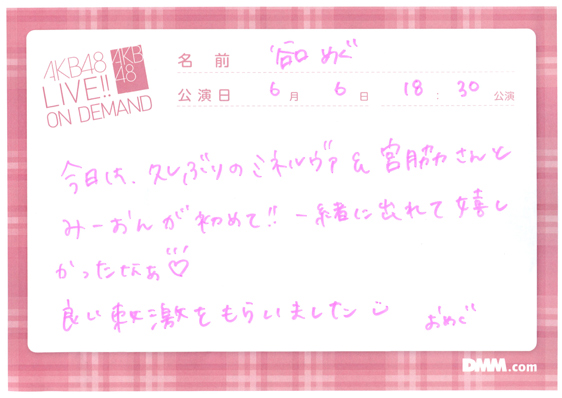 AKB48
LIVE!!
ON DEMAND
AKB
48
名前 谷口 めぐ
公演日 6月 6日 18:30 公演
今日は、久しぶりのミネルヴァ& 宮脇さんと
みーおんが初めて!! 一緒に出れて嬉し
かったなぁ♡
良い刺激をもらいました
おめぐ
DMM.com